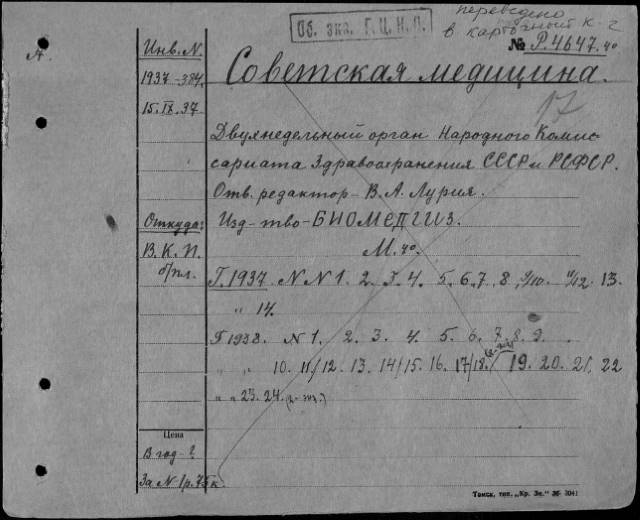 переведено
в карточный к-г
Об. экз. Г.Ц.К.П.
№ Р.4647.40
Инв. N.
1937-384.
15.IX.37
Советская медицина.
17
Двухнедельный орган Народного Комис-
сариата Здравоохранения СССР и РСФСР.
Отв. редактор - В. А. Лурия.
Откуда:
Изд-тво - БИОМЕДГИЗ.
В. К. П.
б/пл.
М. 4о.
Г. 1937. N N 1. 2. 3. 4. 5. 6. 7. 8. 9/10. 11/12. 13.
„ 14.
Г 1938. N 1. 2. 3. 4. 5. 6. 7. 8. 9.
„ „ 10. 11/12. 13. 14/15. 16. 17/18. 19. 20. 21. 22
„ „ 23. 24. (2-экз.)
Цена
В год - ?
За N 1 р. 75 к.
Томск, тип. „Кр. Зн." 36 3041